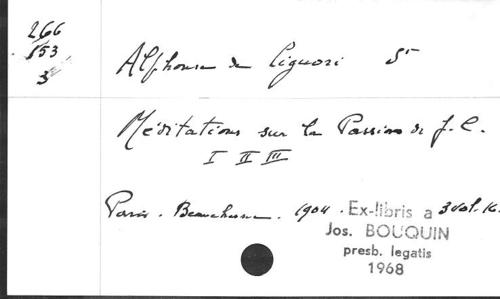 266
153
3
Alphonse de Liguori St
Méditations sur la Passion de J. C.
I II III
Paris. Beauchesne. 1904. 3 vol. 16.
Ex-libris a
Jos. BOUQUIN
presb. legatis
1968